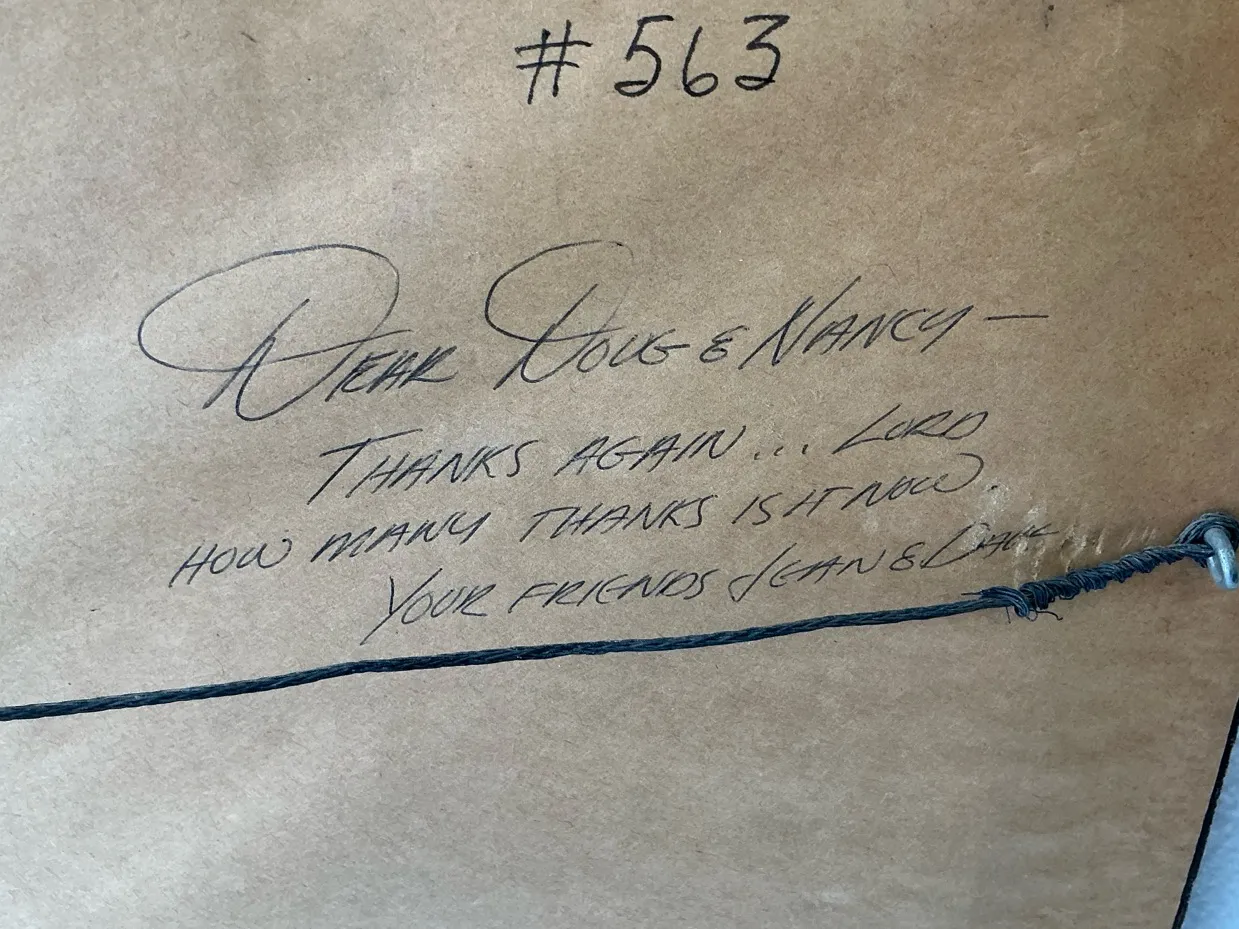 #563
DEAR DOUG & NANCY —
THANKS AGAIN... LORD
HOW MANY THANKS IS IT NOW.
YOUR FRIENDS JEAN &